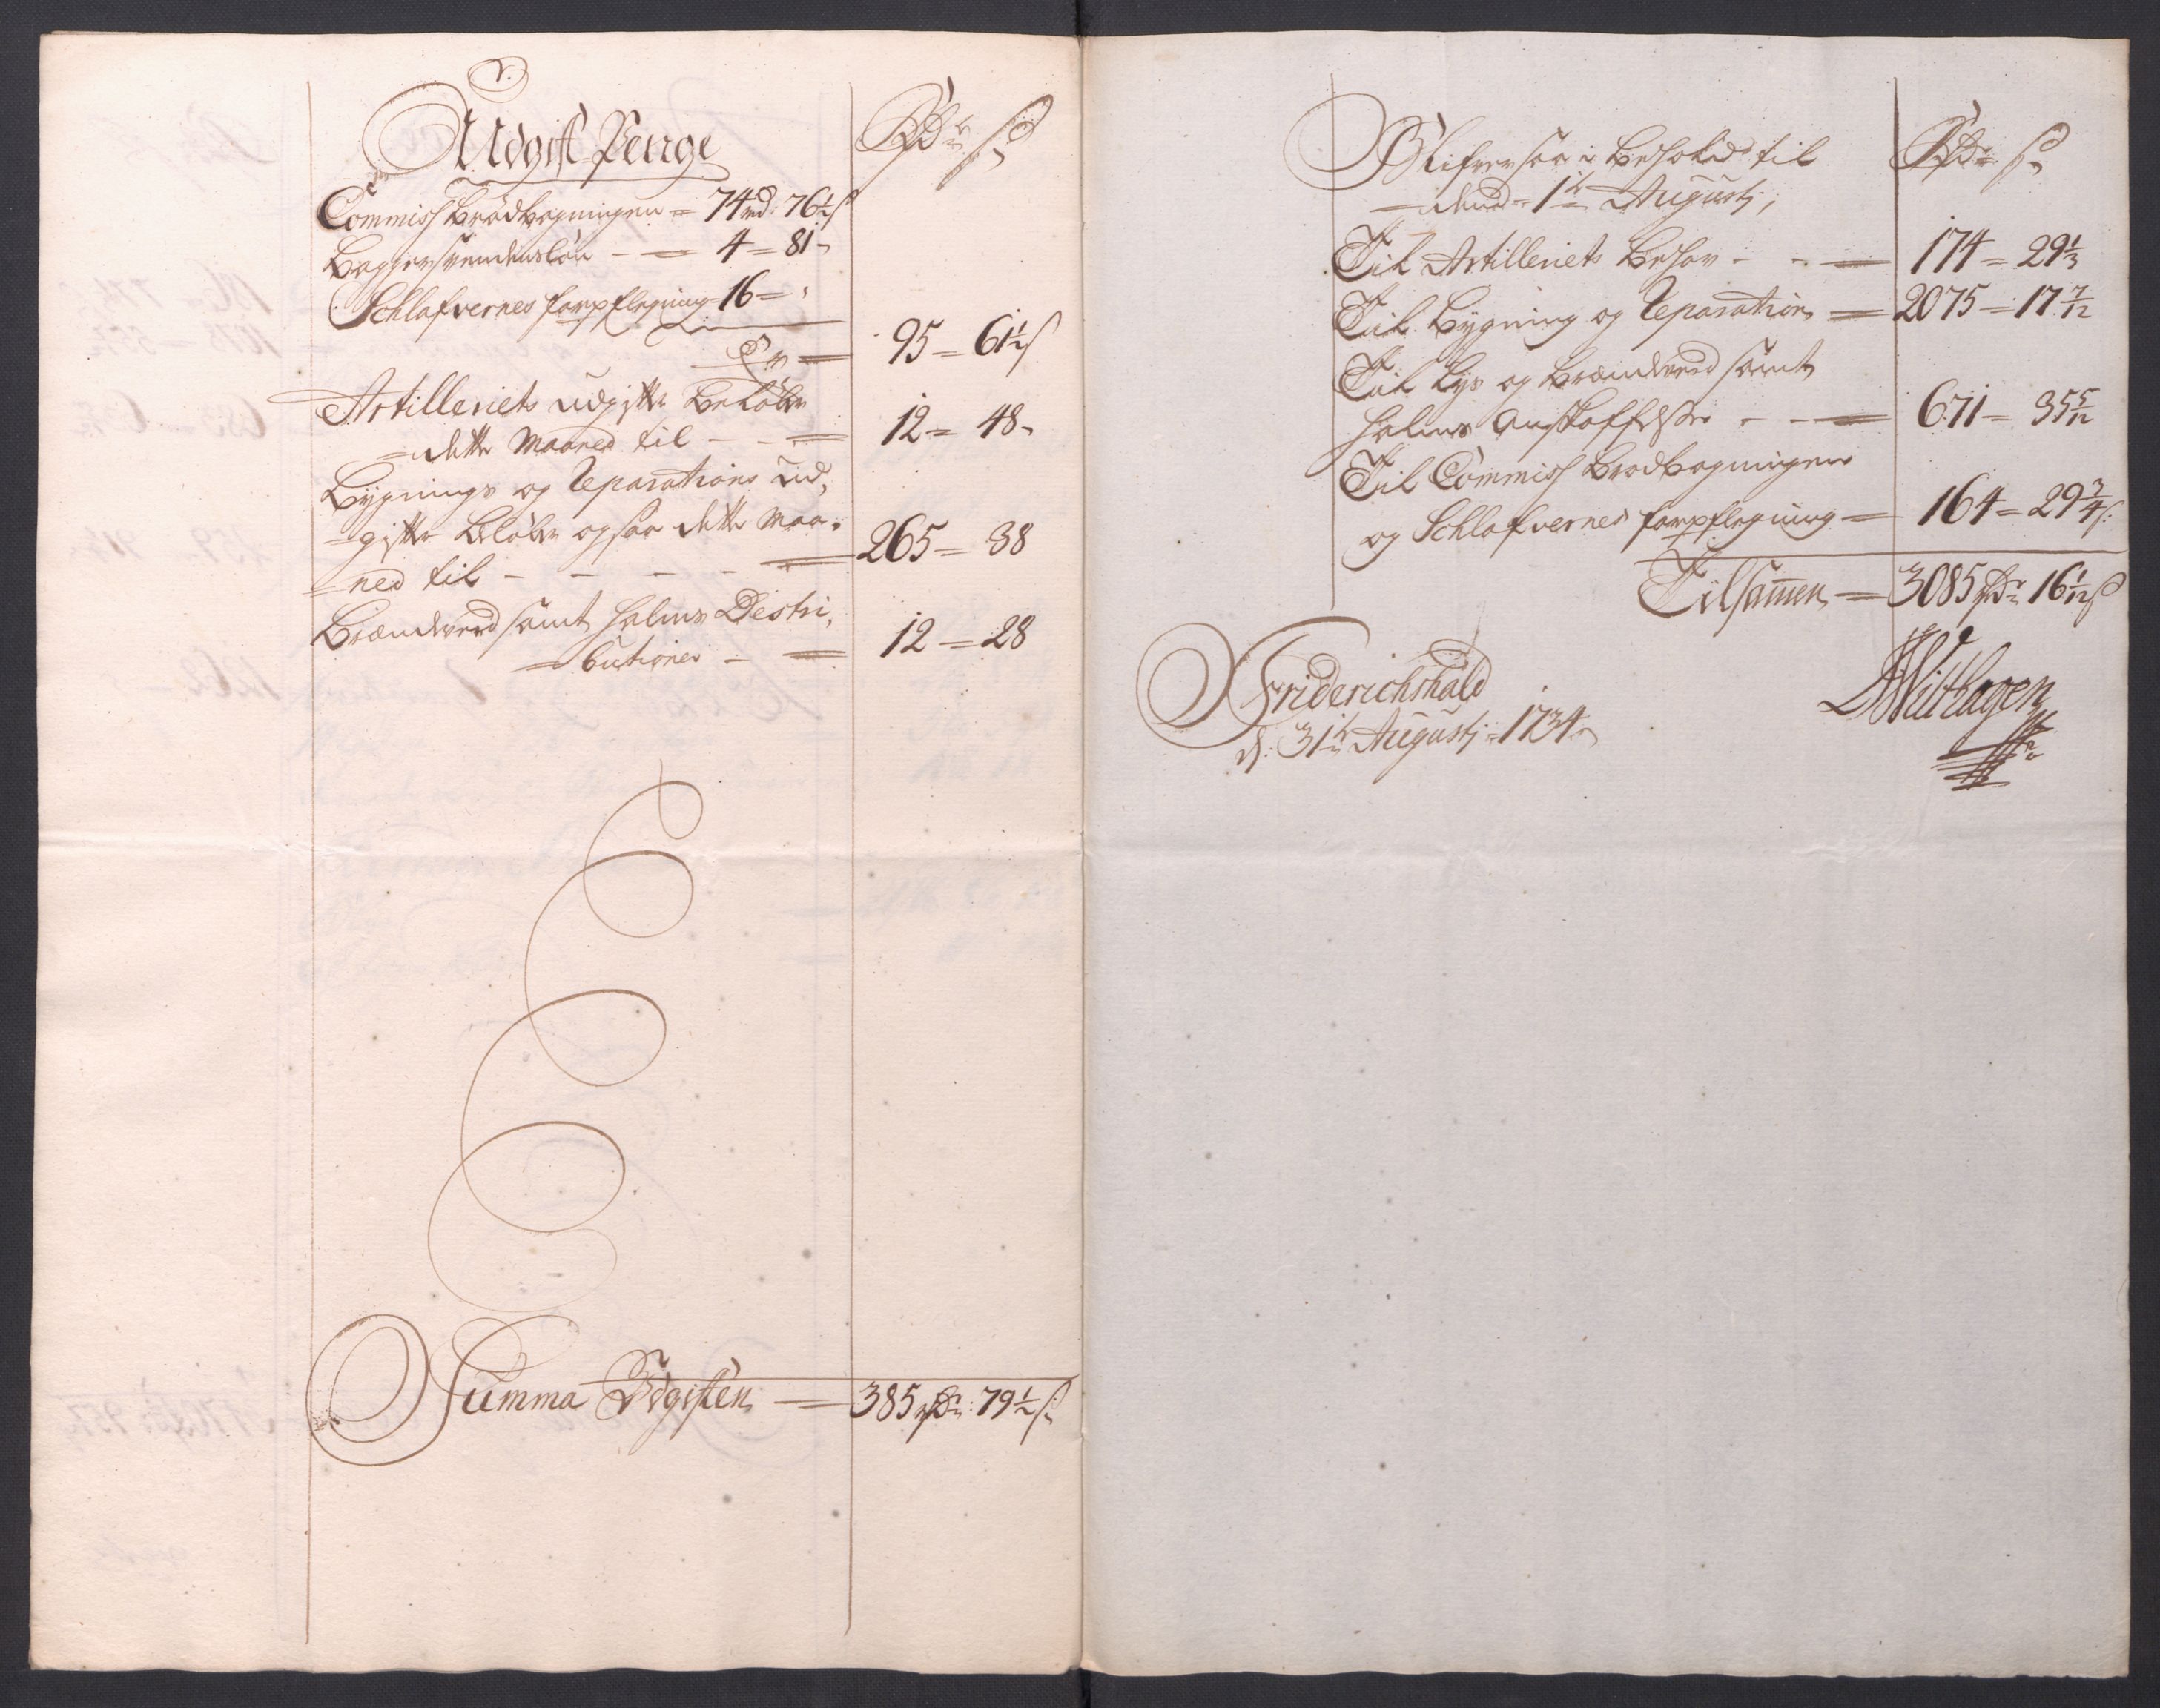 Udgift Penge Rd s
Commiss brødbagningen = 74 rd: 76½ s
Baggersvendens løn - = 4 = 81 -
Schlafvernes forpflegning = 16 = ,
Er = 95 = 61½ s
Artilleriets udgifter beløber
= dette Maaned til - - = 12 = 48 -
Bygnings og Reparations ud,
= gifter beløber ogsaa dette Maa =
= ned til - - - - = 265 = 38
Brændeved samt halms Distri,
= butioner - = 12 = 28
Summa Udgiften = 385 rdr: 79½ s
Blifver saa i behold til Rdr s
= dend = 1te Augusti,
Til Artilleriets behov - - = 174 = 29⅓
Til bygning og Reparation = 2075 = 17 7/12
Til lys og brændeved samt
halms anskaffelse - - = 671 = 35 5/12
Til Commiss brødbagningen
og Schlafvernes forpflegning = 164 = 29¾ s:
Tilsamen = 3085 rdr 16 1/12 s
Friderichshald
d: 31te Augusti = 1734
Withagen